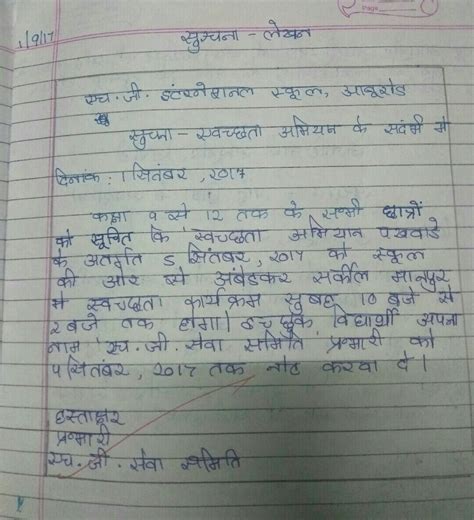 1/9/17
सुचना - लेखन
एच. जी. इंटरनेशनल स्कूल, आबूरोड
सुचना - स्वच्छता अभियान के संदर्भ मे
दिनांक : 1 सितंबर, 2017
कक्षा 9 से 12 तक के सभी छात्रों
को सूचित कि स्वच्छता अभियान पखवाडे
के अतर्गत 5 सितंबर, 2017 को स्कूल
की ओर से अंबेडकर सर्कील मानपुर
मे स्वच्छता कार्यक्रम सुबह 10 बजे से
2 बजे तक होगा। इच्छुक विद्यार्थी अपना
नाम एच. जी. सेवा समिति प्रभारी को
4 सितंबर, 2017 तक नोट करवा दे।
हस्ताक्षर
प्रभारी
एच. जी. सेवा समिति